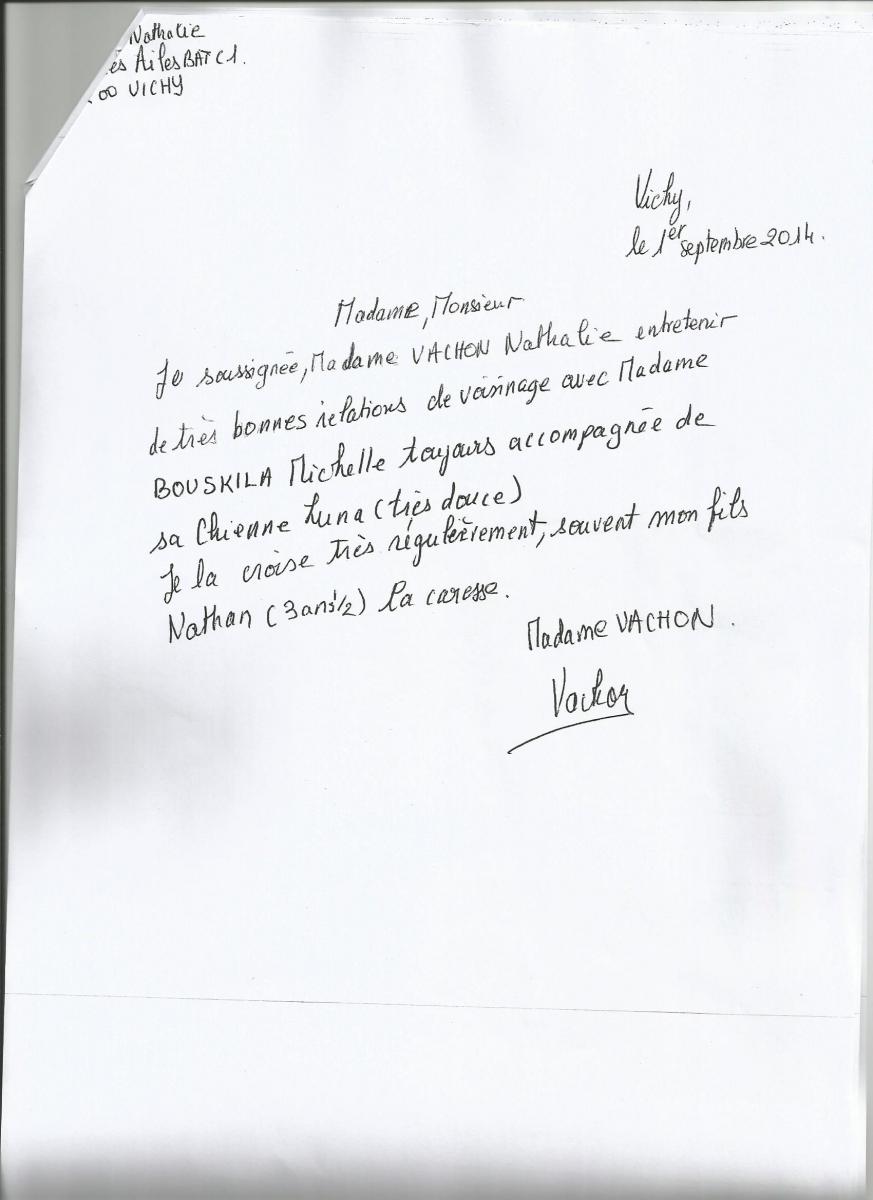 Nathalie
es Ailes BAT C1.
00 VICHY
Vichy,
le 1er septembre 2014.
Madame, Monsieur
Je soussignée, Madame VACHON Nathalie entretenir
de très bonnes relations de voisinage avec Madame
BOUSKILA Michelle toujours accompagnée de
sa Chienne Luna (très douce)
Je la croise très régulièrement, souvent mon fils
Nathan (3 ans 1/2) la caresse.
Madame VACHON.
Vachon